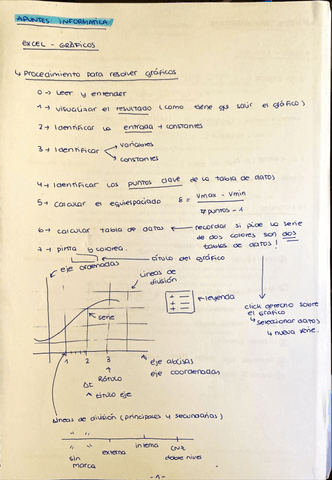 APUNTES INFORMÁTICA
EXCEL - GRÁFICOS
↳ Procedimiento para resolver gráficos
0 → Leer y entender
1 → visualizar el resultado (como tiene que salir el gráfico)
2 → Identificar la entrada → constantes
3 → Identificar
variables
constantes
4 → Identificar los puntos clave de la tabla de datos
5 → calcular el equiespaciado δ = Vmax - Vmin
# puntos - 1
6 → calcular tabla de datos
recordar si pide la serie
de dos colores son dos
tablas de datos!
7 → pinta y colorea
título del gráfico
eje ordenadas
líneas de
división
leyenda
serie
click derecho sobre
el gráfico
↳ seleccionar datos
↳ nueva serie.
1 2 3
eje abcisas
eje coordenadas
Rótulo
Δt
título eje
líneas de división (principales y secundarias)
sin
marca
externa
interna
cruz
doble nivel
-1-